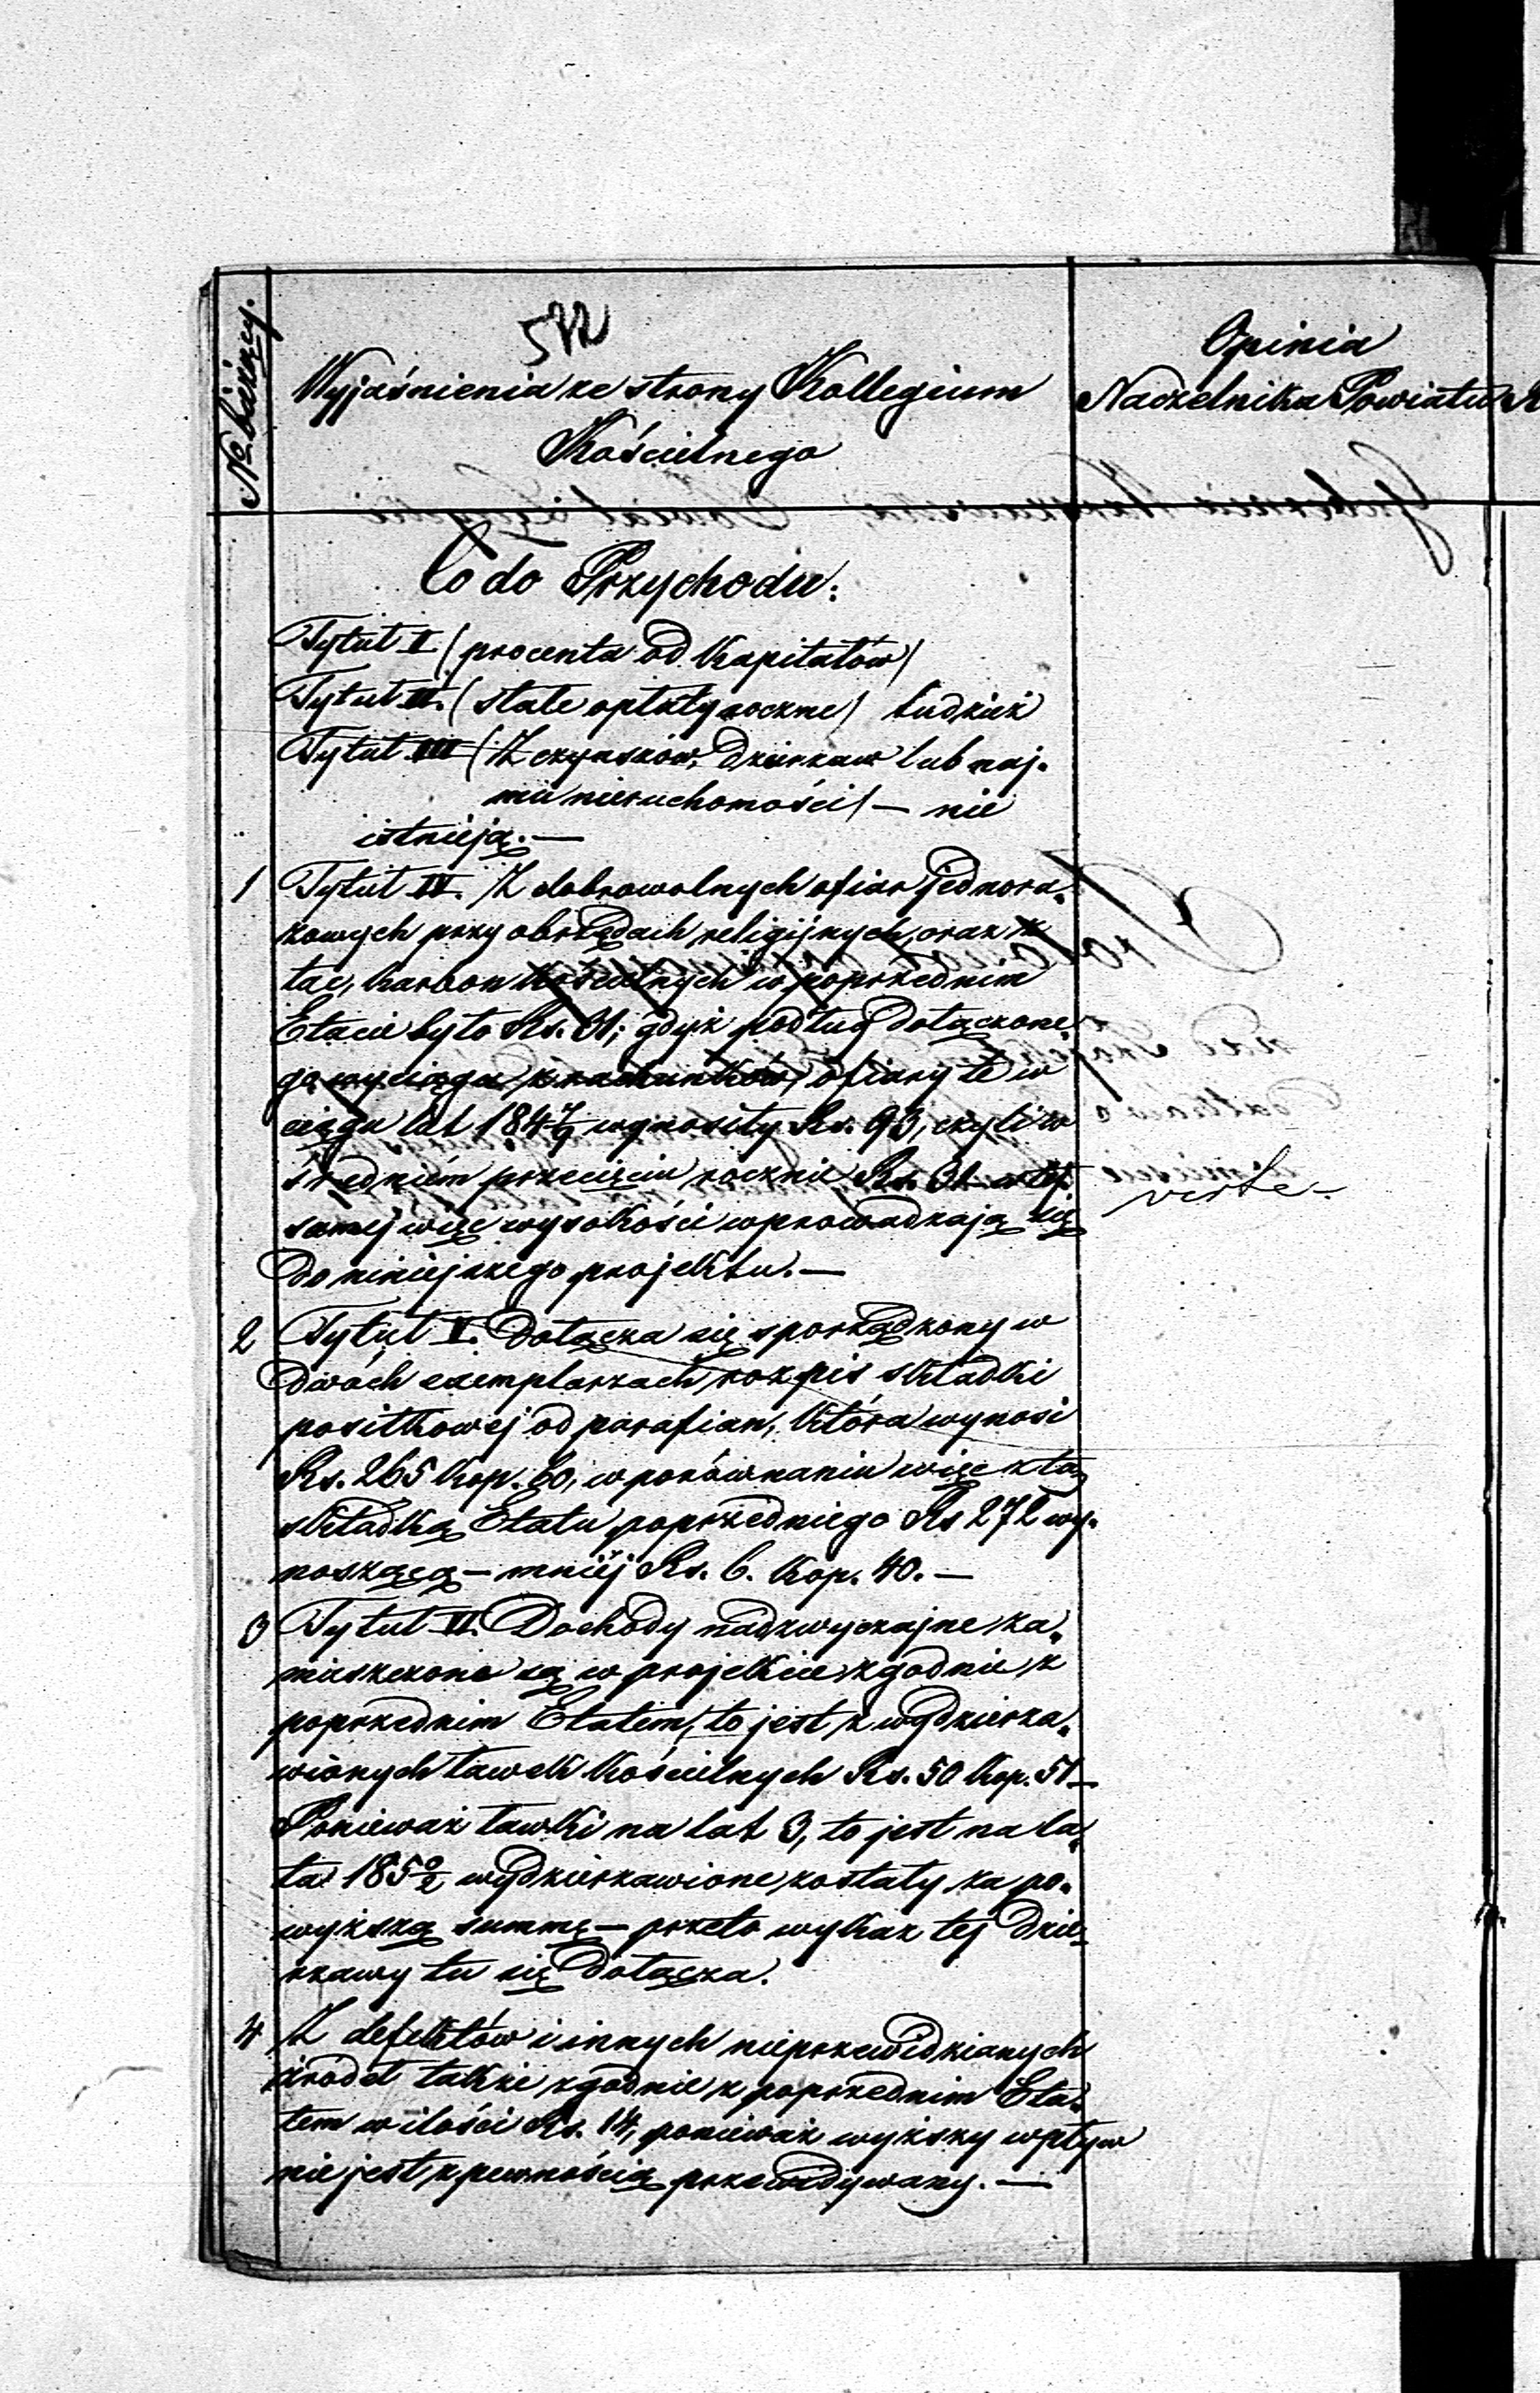 № bieżący.
522
Wyjaśnienia ze strony Kollegium
Kościelnego
Opinia
Naczelnika Powiatu
Co do Przychodu:
Tytuł I (procenta od Kapitałów)
Tytuł II. (stałe opłaty roczne) tudzież
Tytuł III (Z czynszów, Dzierżaw lub naj-
mu nieruchomości) — nie
istnieją. —
1 Tytuł IV. Z dobrowolnych ofiar jednora-
zowych przy obrzędach religijnych, oraz z
tac, karbon kościelnych w poprzednim
Etacie było Rs. 31; gdyż podług dołączone-
go wyciągu z rachunków, ofiary te w
ciągu lat 184 7/9 wynosiły Rs. 93, czyli w
średniém przecięciu rocznie Rs. 31 w tej
samej więc wysokości wprowadzają się
do niniejszego projektu. —
verte –
2 Tytuł V. Dołącza się sporządzony w
dwóch exemplarzach rozpis składki
posiłkowej od parafian, która wynosi
Rs. 265 Kop. 60, w porównaniu więc z tą
składką Etatu poprzedniego Rs 272 wy-
noszącą – mniéj Rs. 6. Kop. 40. —
3 Tytuł VI. Dochody nadzwyczajne za-
mieszczone są w projekcie zgodnie z
poprzednim Etatem, to jest z wydzierża-
wionych ławek kościelnych Rs. 50 Kop. 51 —
Ponieważ ławki na lat 3, to jest na la-
ta 185 0/2 wydzierżawione zostały za po-
wyższą summę — przeto wykaz tej dzie-
rżawy tu się dołącza.
4 Z defektów i innych nieprzewidzianych
źródeł także zgodnie z poprzednim Eta-
tem w ilości Rs. 14, ponieważ wyższy wpływ
nie jest z pewnością przewidywany. —